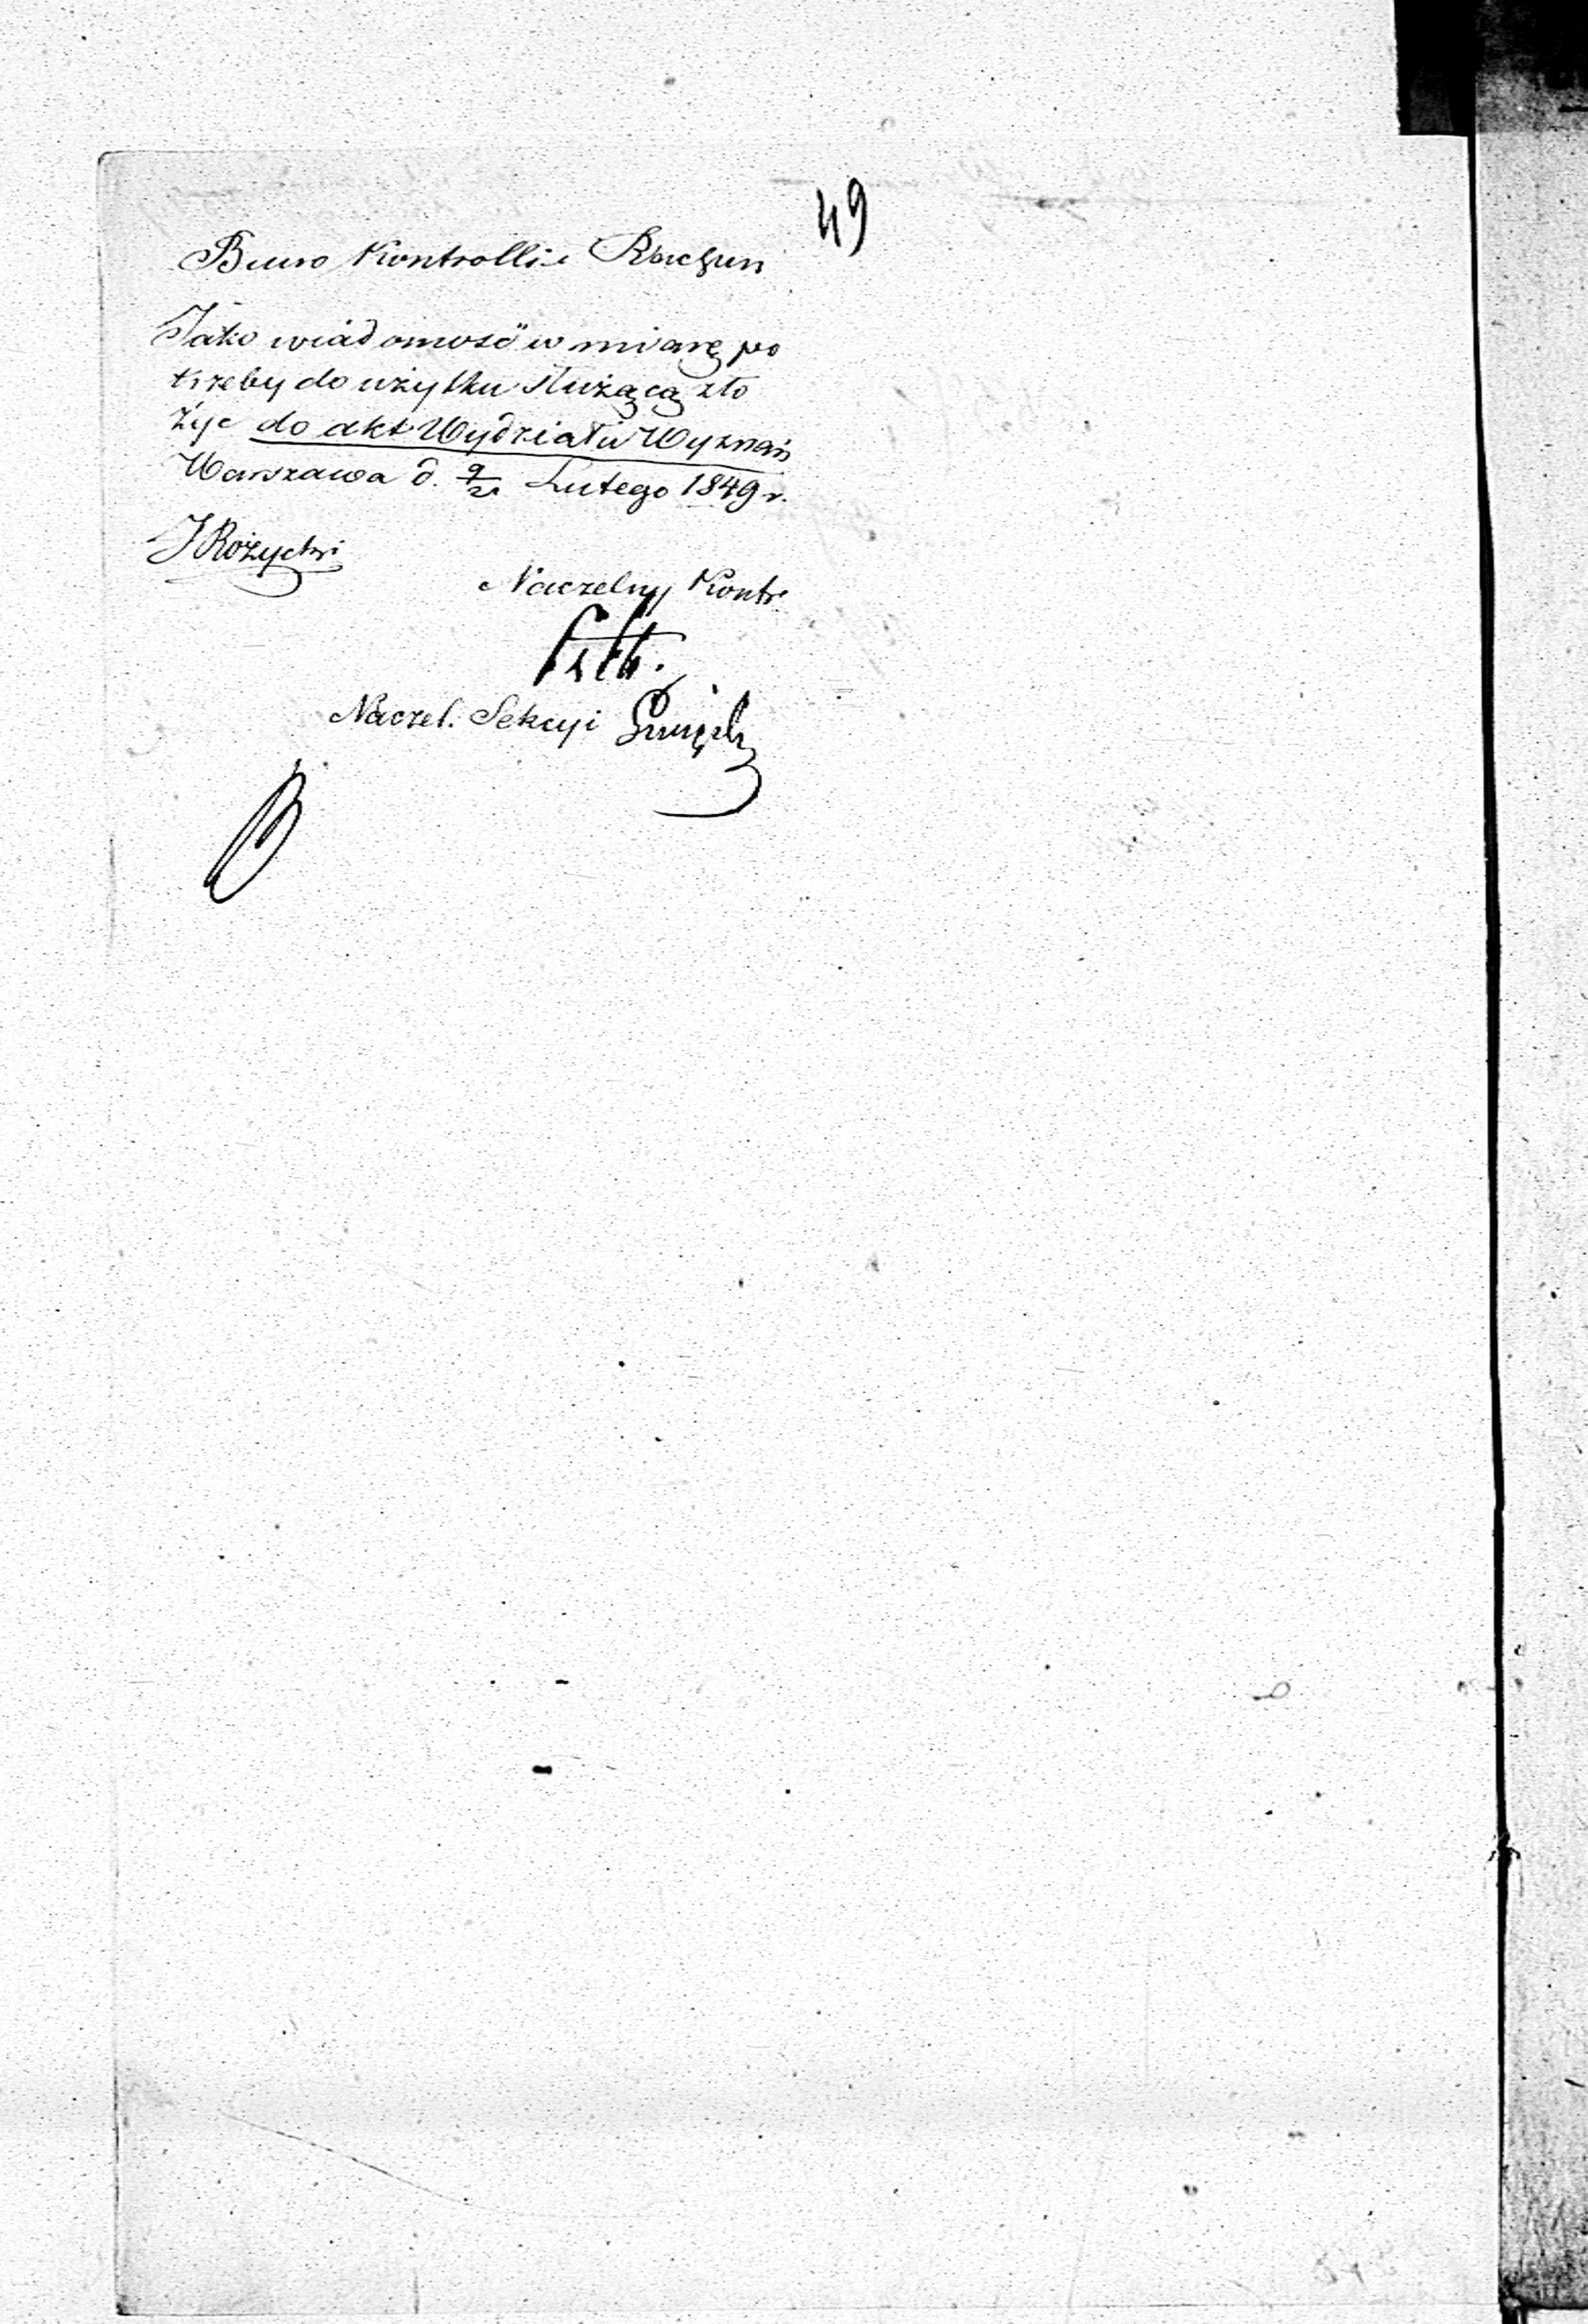 49
Biuro Kontrolli i Rachun
Jako wiadomość w miarę po
trzeby do użytku służącą zło
żyć do akt Wydziału Wyznań
Warszawa d. 9/21 Lutego 1849 r.
J Różycki
Naczelny Kontr
Naczel. Sekcyi